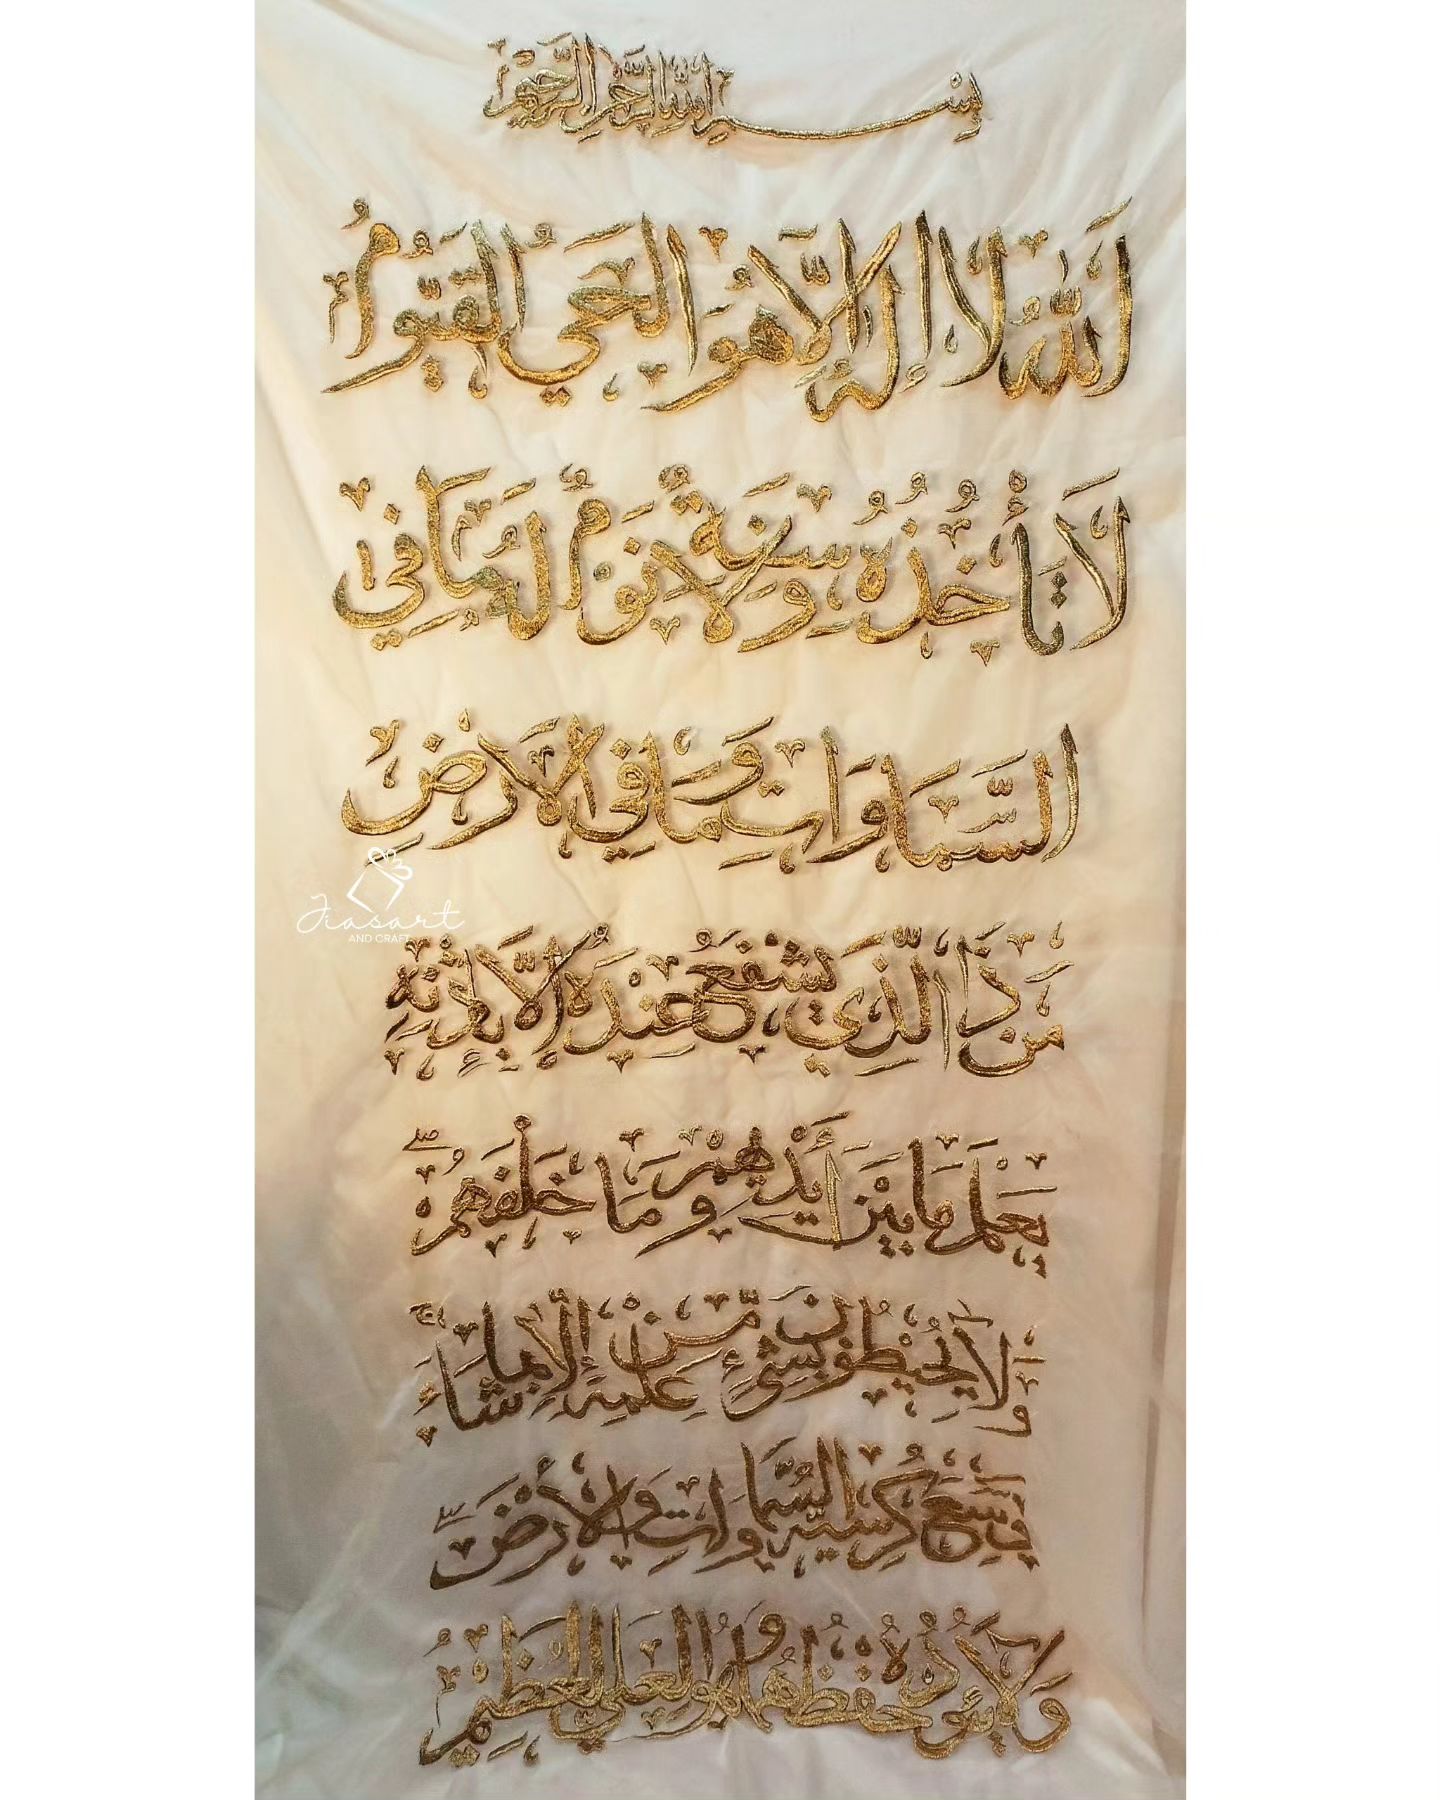 بِسْمِ اللهِ الرَّحْمٰنِ الرَّحِيْمِ
اَللّٰهُ لَا إِلٰهَ إِلَّا هُوَ الْحَيُّ الْقَيُّوْمُ
لَا تَأْخُذُهُ سِنَةٌ وَلَا نَوْمٌ لَهُ مَا فِي
السَّمَاوَاتِ وَمَا فِي الْأَرْضِ
مَنْ ذَا الَّذِي يَشْفَعُ عِنْدَهُ إِلَّا بِإِذْنِهِ
يَعْلَمُ مَا بَيْنَ أَيْدِيْهِمْ وَمَا خَلْفَهُمْ ۖ
وَلَا يُحِيْطُوْنَ بِشَيْءٍ مِّنْ عِلْمِهِ إِلَّا بِمَا شَاءَ ۚ
وَسِعَ كُرْسِيُّهُ السَّمَاوَاتِ وَالْأَرْضَ
وَلَا يَئُوْدُهُ حِفْظُهُمَا وَهُوَ الْعَلِيُّ الْعَظِيْمُ
Jiasart
AND CRAFT